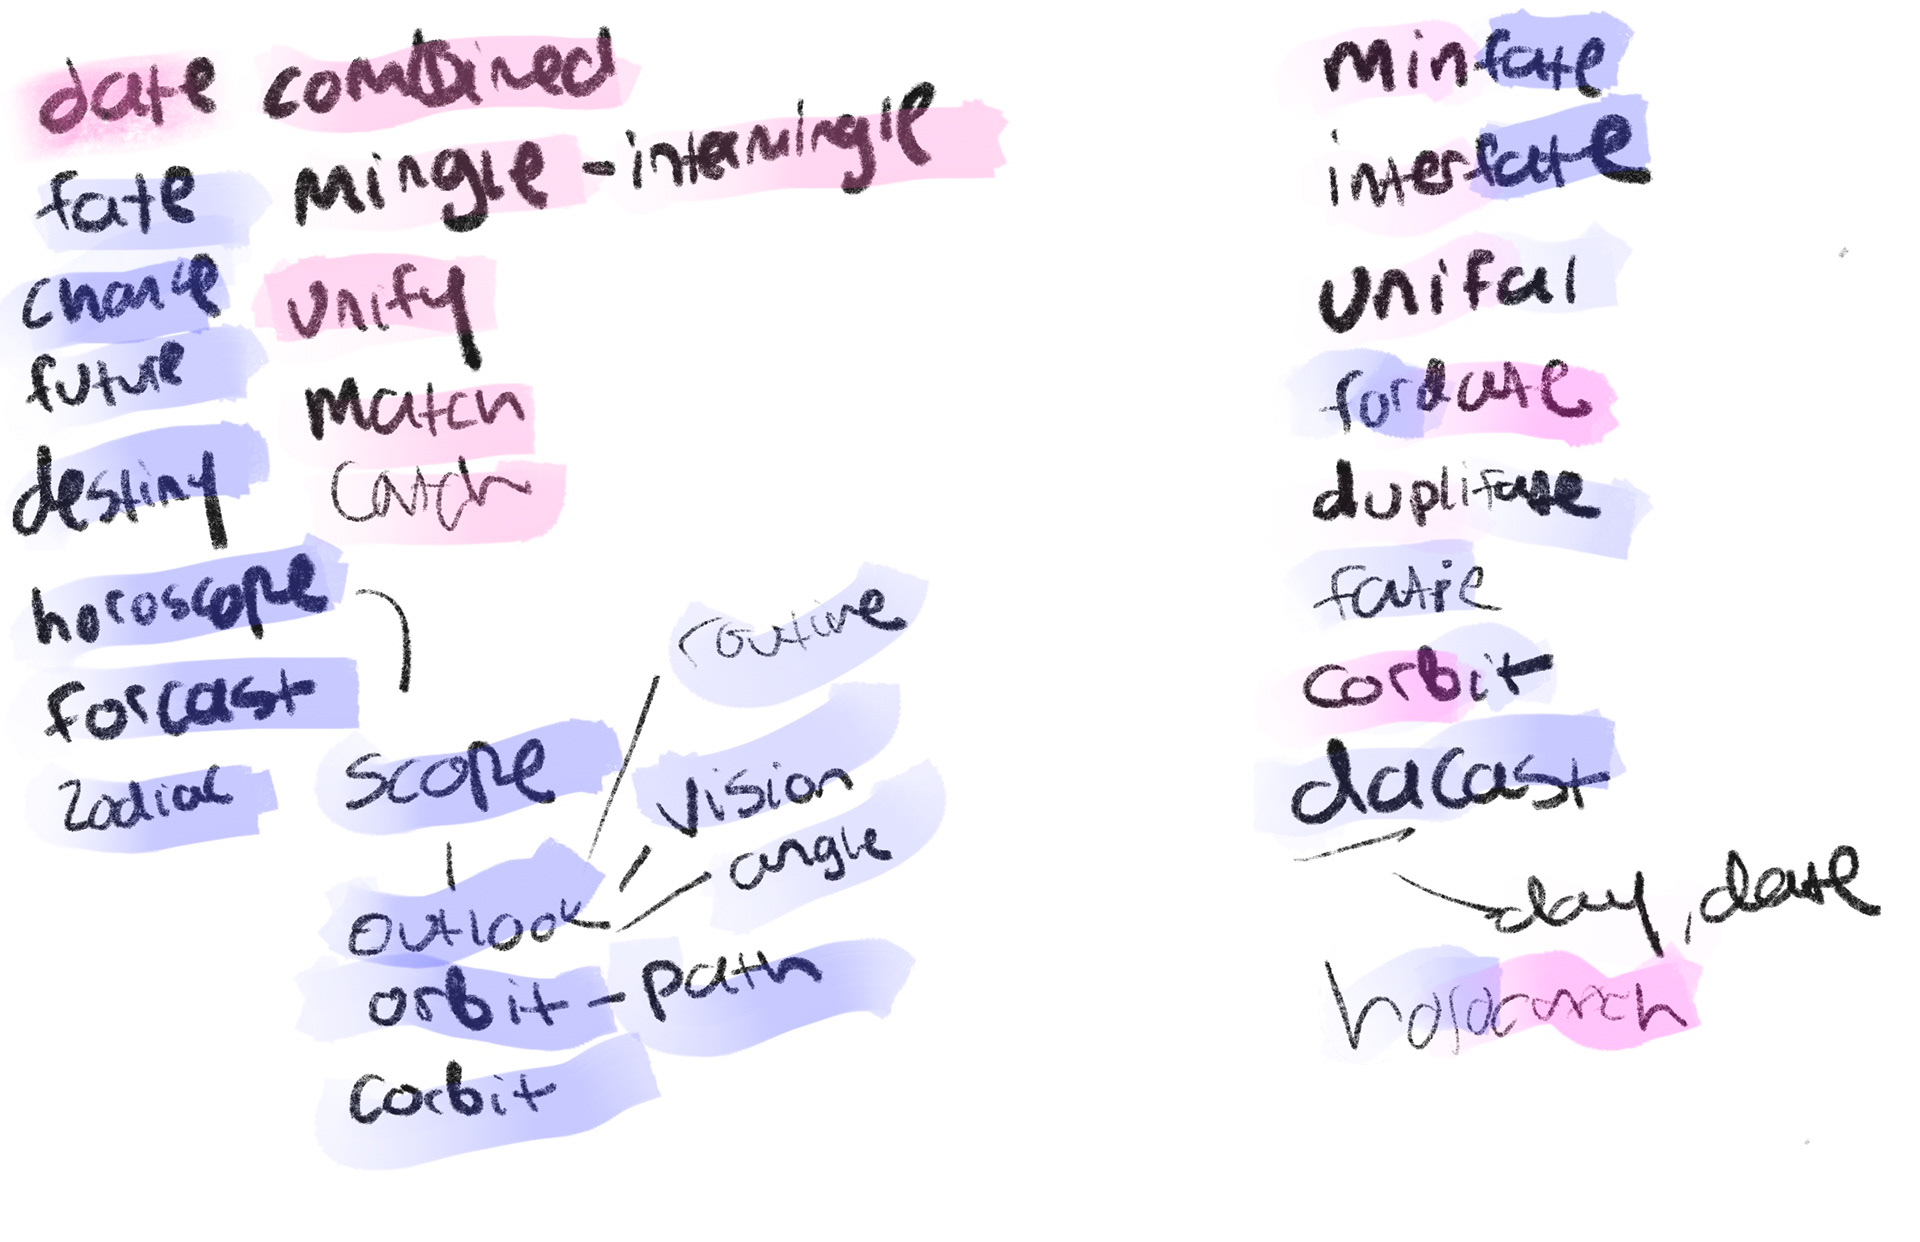 date combined
fate mingle - intermingle
chance unify
future match
destiny catch
horoscope
forcast
zodiac scope
routine
vision
angle
outlook
orbit - path
corbit
minfate
interfate
unifal
fordate
duplifate
corbit
dacast
day, date